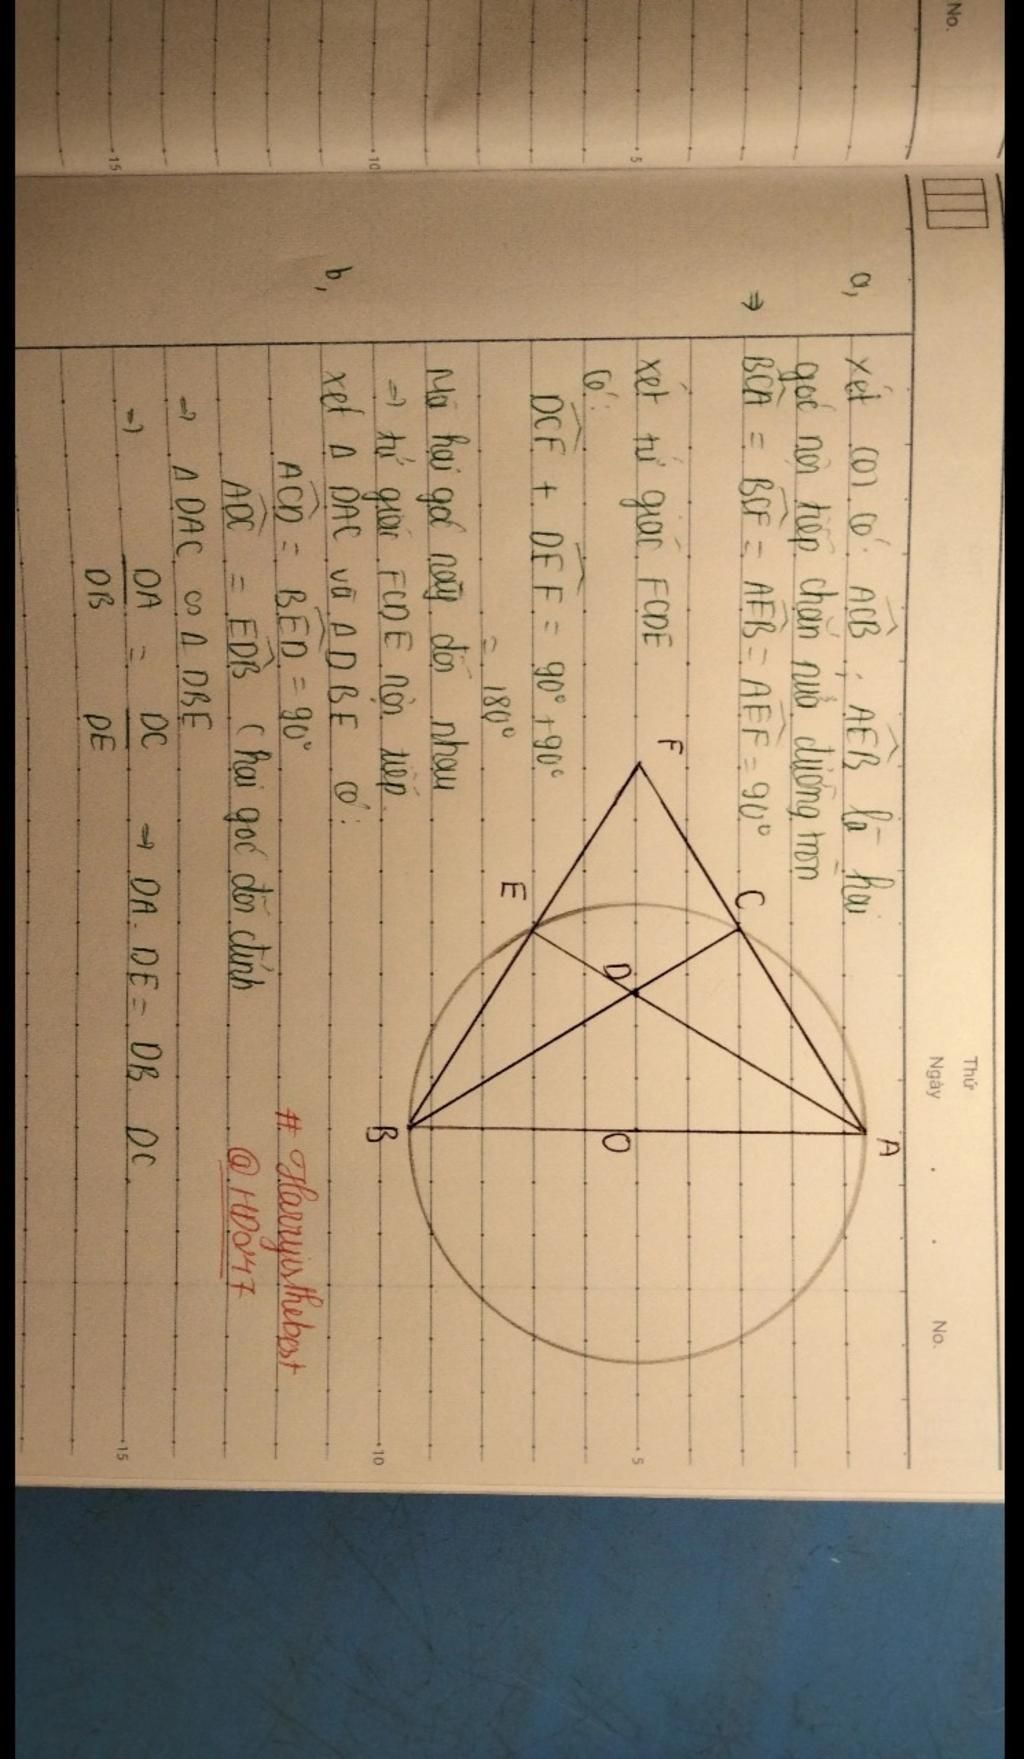 No.
Thứ
Ngày . . No.
a, xét (O) có: ACB ; AEB là hai
góc nội tiếp chắn nửa đường tròn
⇒ BCA = BCF = AEB = AEF = 90°
xét tứ giác FCDE
có:
DCF + DEF = 90° + 90°
= 180°
Mà hai góc này đối nhau
⇒ tứ giác FCDE nội tiếp.
b, xét Δ DAC và Δ DBE có:
ACD = BED = 90°
ADC = EDB (hai góc đối đỉnh
⇒ Δ DAC ∽ Δ DBE
⇒ DA/DB = DC/DE → DA. DE = DB. DC.
F
E
C
D
B
O
A
# Harryisthebest
@HD247
5
10
15
5
10
15